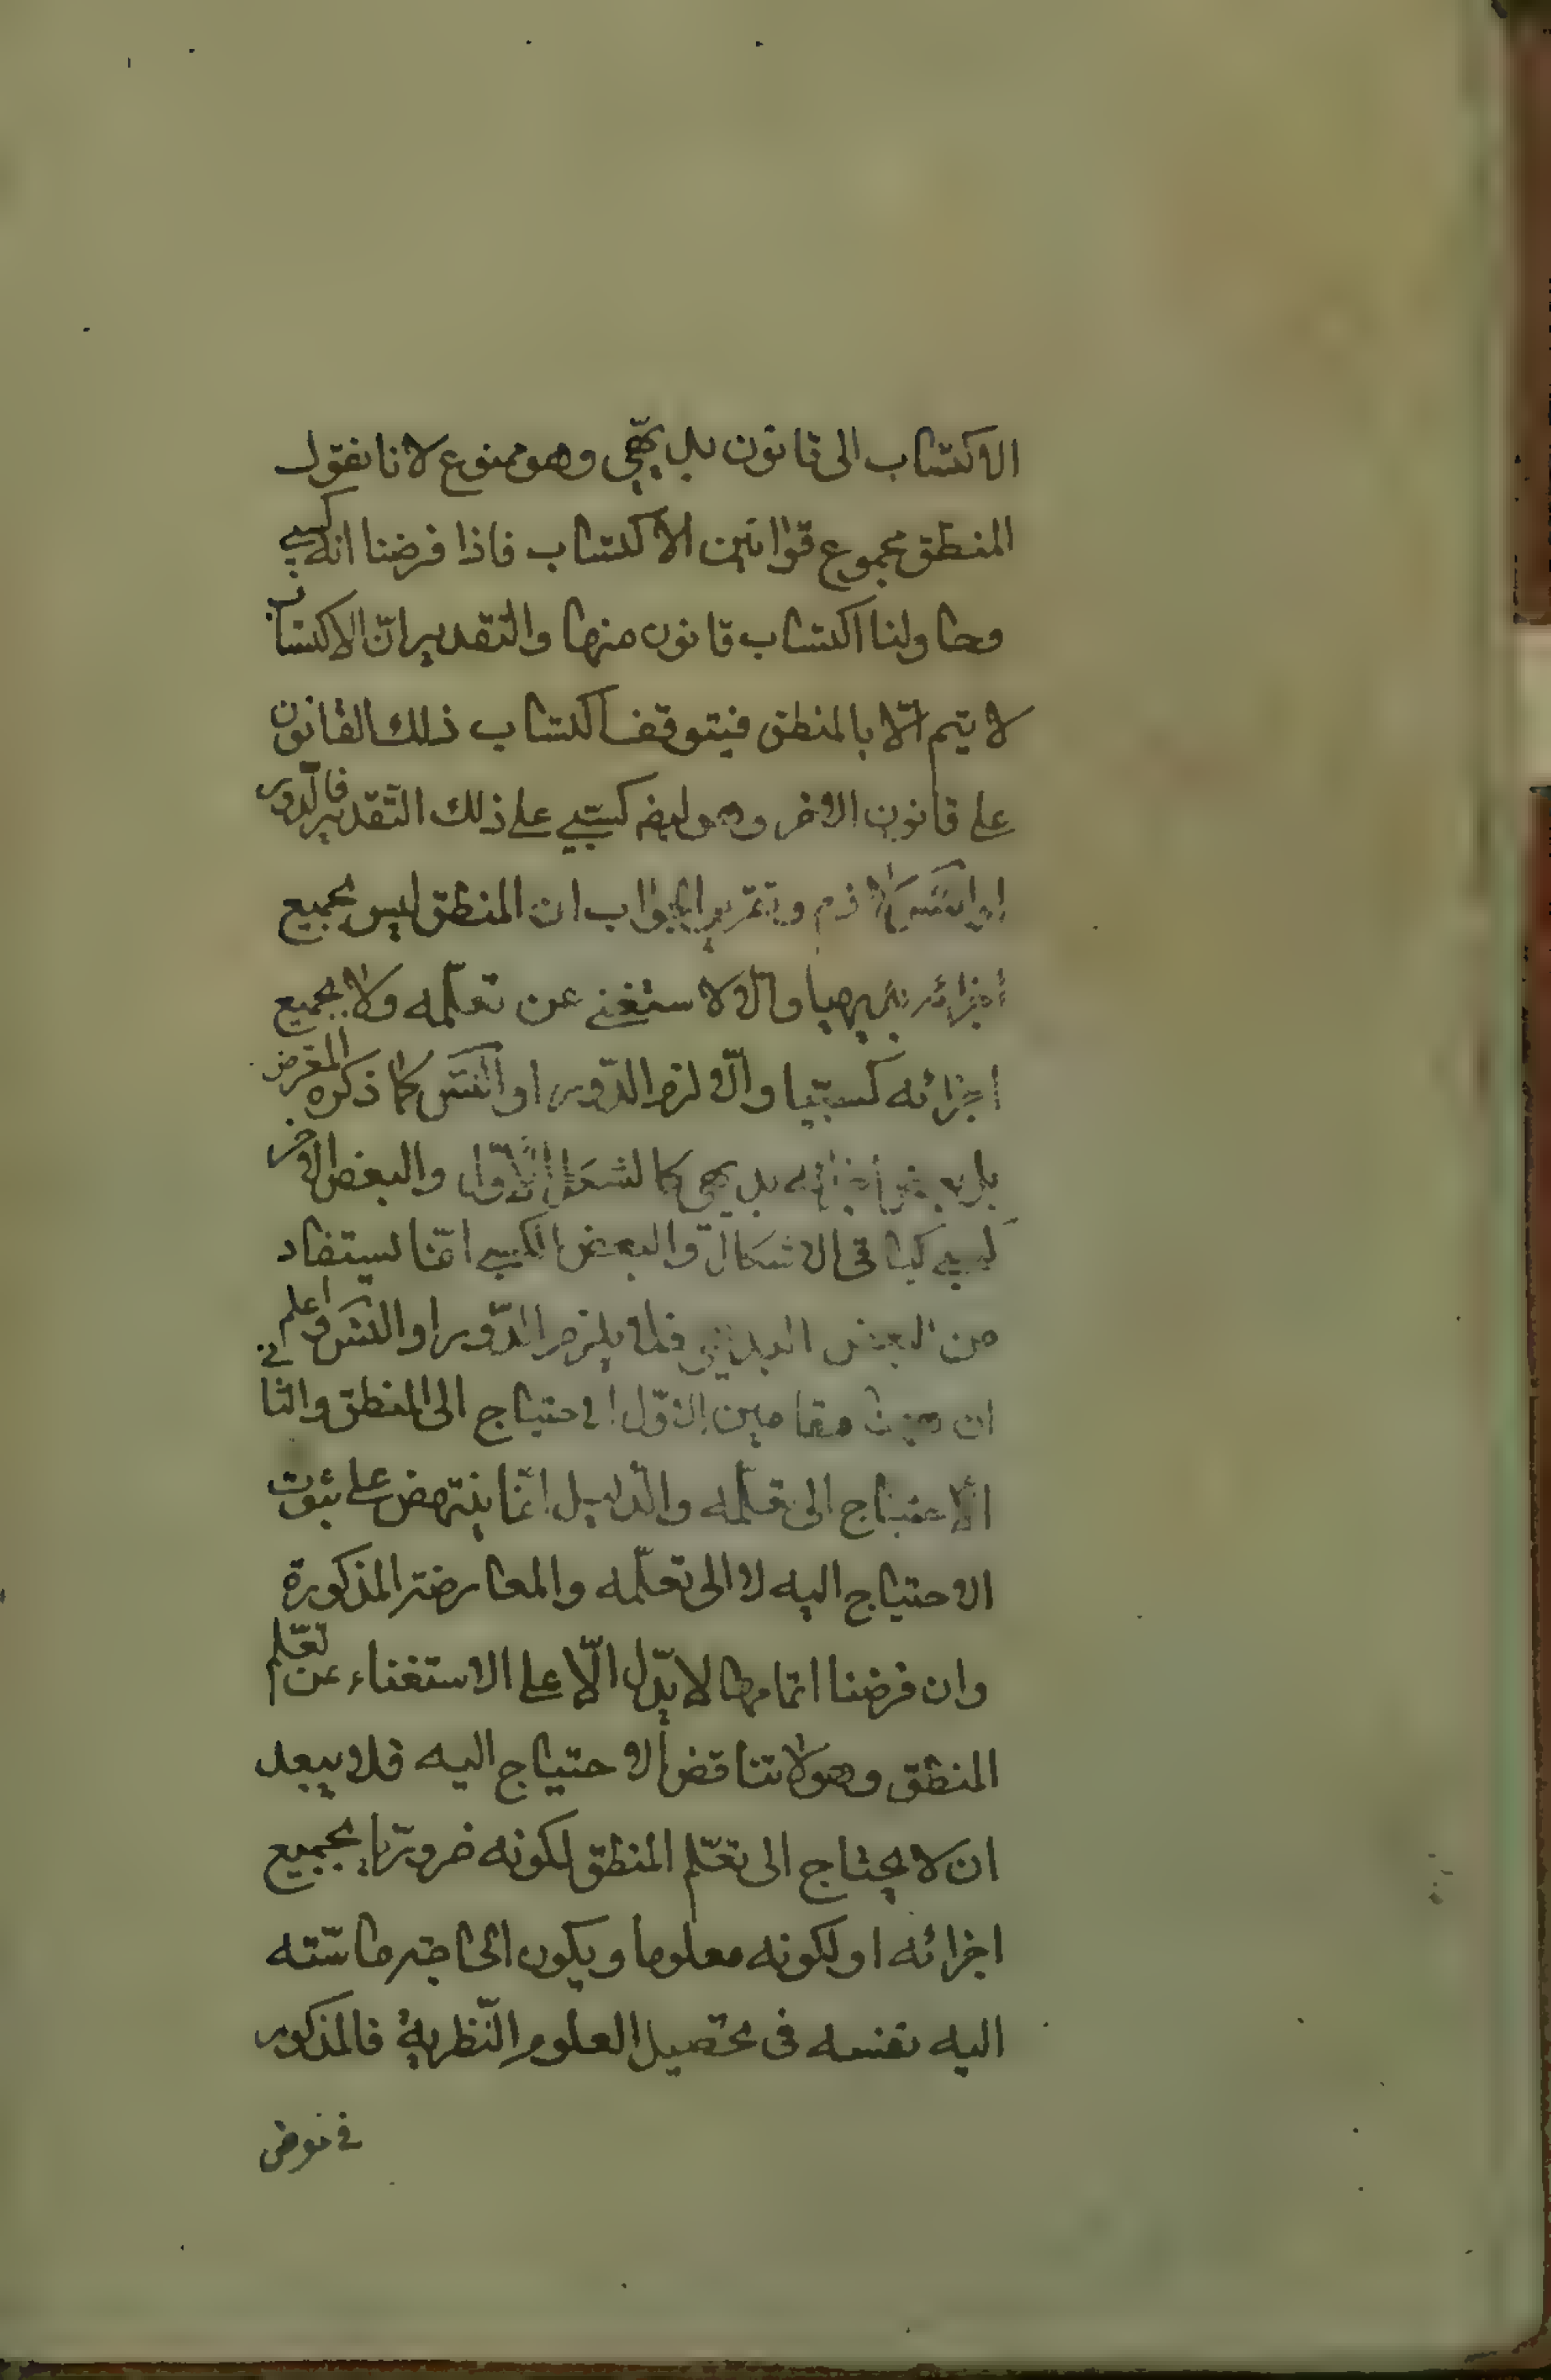 الاكتساب الى قانون بديهّي وهو ممنوع لانا نقول
المنطق مجموع قوانين الاكتساب فاذا فرضنا انه كسبي
وحاولنا اكتساب قانون منها والتقدير انّ الاكتساب
لا يتم الّا بالمنطق فيتوقف اكتساب ذلك القانون
على قانون الاخر وهو ايضا كسبّي على ذلك التّقدير فالدّور
او التس لازم وتقرير الجواب ان المنطق ليس بجميع
اجزائه بديهيا والّا لاستغنى عن تعلّمه ولا بجميع
اجزائه كسبيّا والّا لزم الدّور او التس كما ذكره المعترض
بل بعض اجزائه بديهي كالشكل الاوّل والبعض الاخر
كسبي كباقى الاشكال والبعض الكسبي انّما يستفاد
من البعض البديهي فلا يلزم الدّور او التس واعلم
ان ههنا مقامين الاوّل الاحتياج الى المنطق والثاني
الاحتياج الى تعلّمه والدّليل انّما ينتهض على ثبوت
الاحتياج اليه لا الى تعلّمه والمعارضة المذكورة
وان فرضنا اتمامها لا يدّل الّا على الاستغناء عن تعلّم
المنطق وهو لا تناقض الاحتياج اليه فلا يبعد
ان لا يحتاج الى تعّلم المنطق لكونه ضروريّا بجميع
اجزائه او لكونه معلوما ويكون الحاجة ماسّته
اليه نفسه فى تحصيل العلوم النّظرية فالمذكور
فى